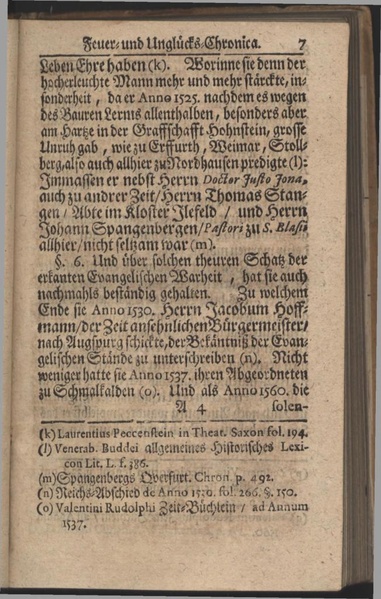 Feuer- und Unglücks-Chronica. 7
Leben Ehre haben (k). Worinne sie denn der
hocherleuchte Mann mehr und mehr stärckte, in-
sonderheit, da er Anno 1525. nachdem es wegen
des Bauren Lerns allenthalben, besonders aber
am Hartze in der Graffschafft Hohnstein, grosse
Unruh gab, wie zu Erffurth, Weimar, Stoll-
berg, also auch allhier zu Nordhausen predigte (l):
Immassen er nebst Herrn Doctor Justo Jona,
auch zu andrer Zeit/ Herrn Thomas Stan-
gen/ Abte im Kloster Ilefeld/ und Herrn
Johann Spangenbergen/ Pastori zu S. Blasii
allhier/ nicht seltzam war (m).
§. 6. Und über solchen theuren Schatz der
erkanten Evangelischen Warheit, hat sie auch
nachmahls beständig gehalten. Zu welchem
Ende sie Anno 1530. Herrn Jacobum Hoff-
mann/ der Zeit ansehnlichen Bürgermeister/
nach Augspurg schickte, der Bekäntniß der Evan-
gelischen Stände zu unterschreiben (n). Nicht
weniger hatte sie Anno 1537. ihren Abgeordneten
zu Schmalkalden (o). Und als Anno 1560. die
A 4 solen-
(k) Laurentius Peccenstein in Theat. Saxon fol. 194.
(l) Venerab. Buddei allgemeines Historisches Lexi-
con Lit. L. f. 386.
(m) Spangenbergs Qverfurt. Chron. p. 492.
(n) Reichs-Abschied de Anno 1530. fol. 266. §. 150.
(o) Valentini Rudolphi Zeit-Büchlein/ ad Annum
1537.